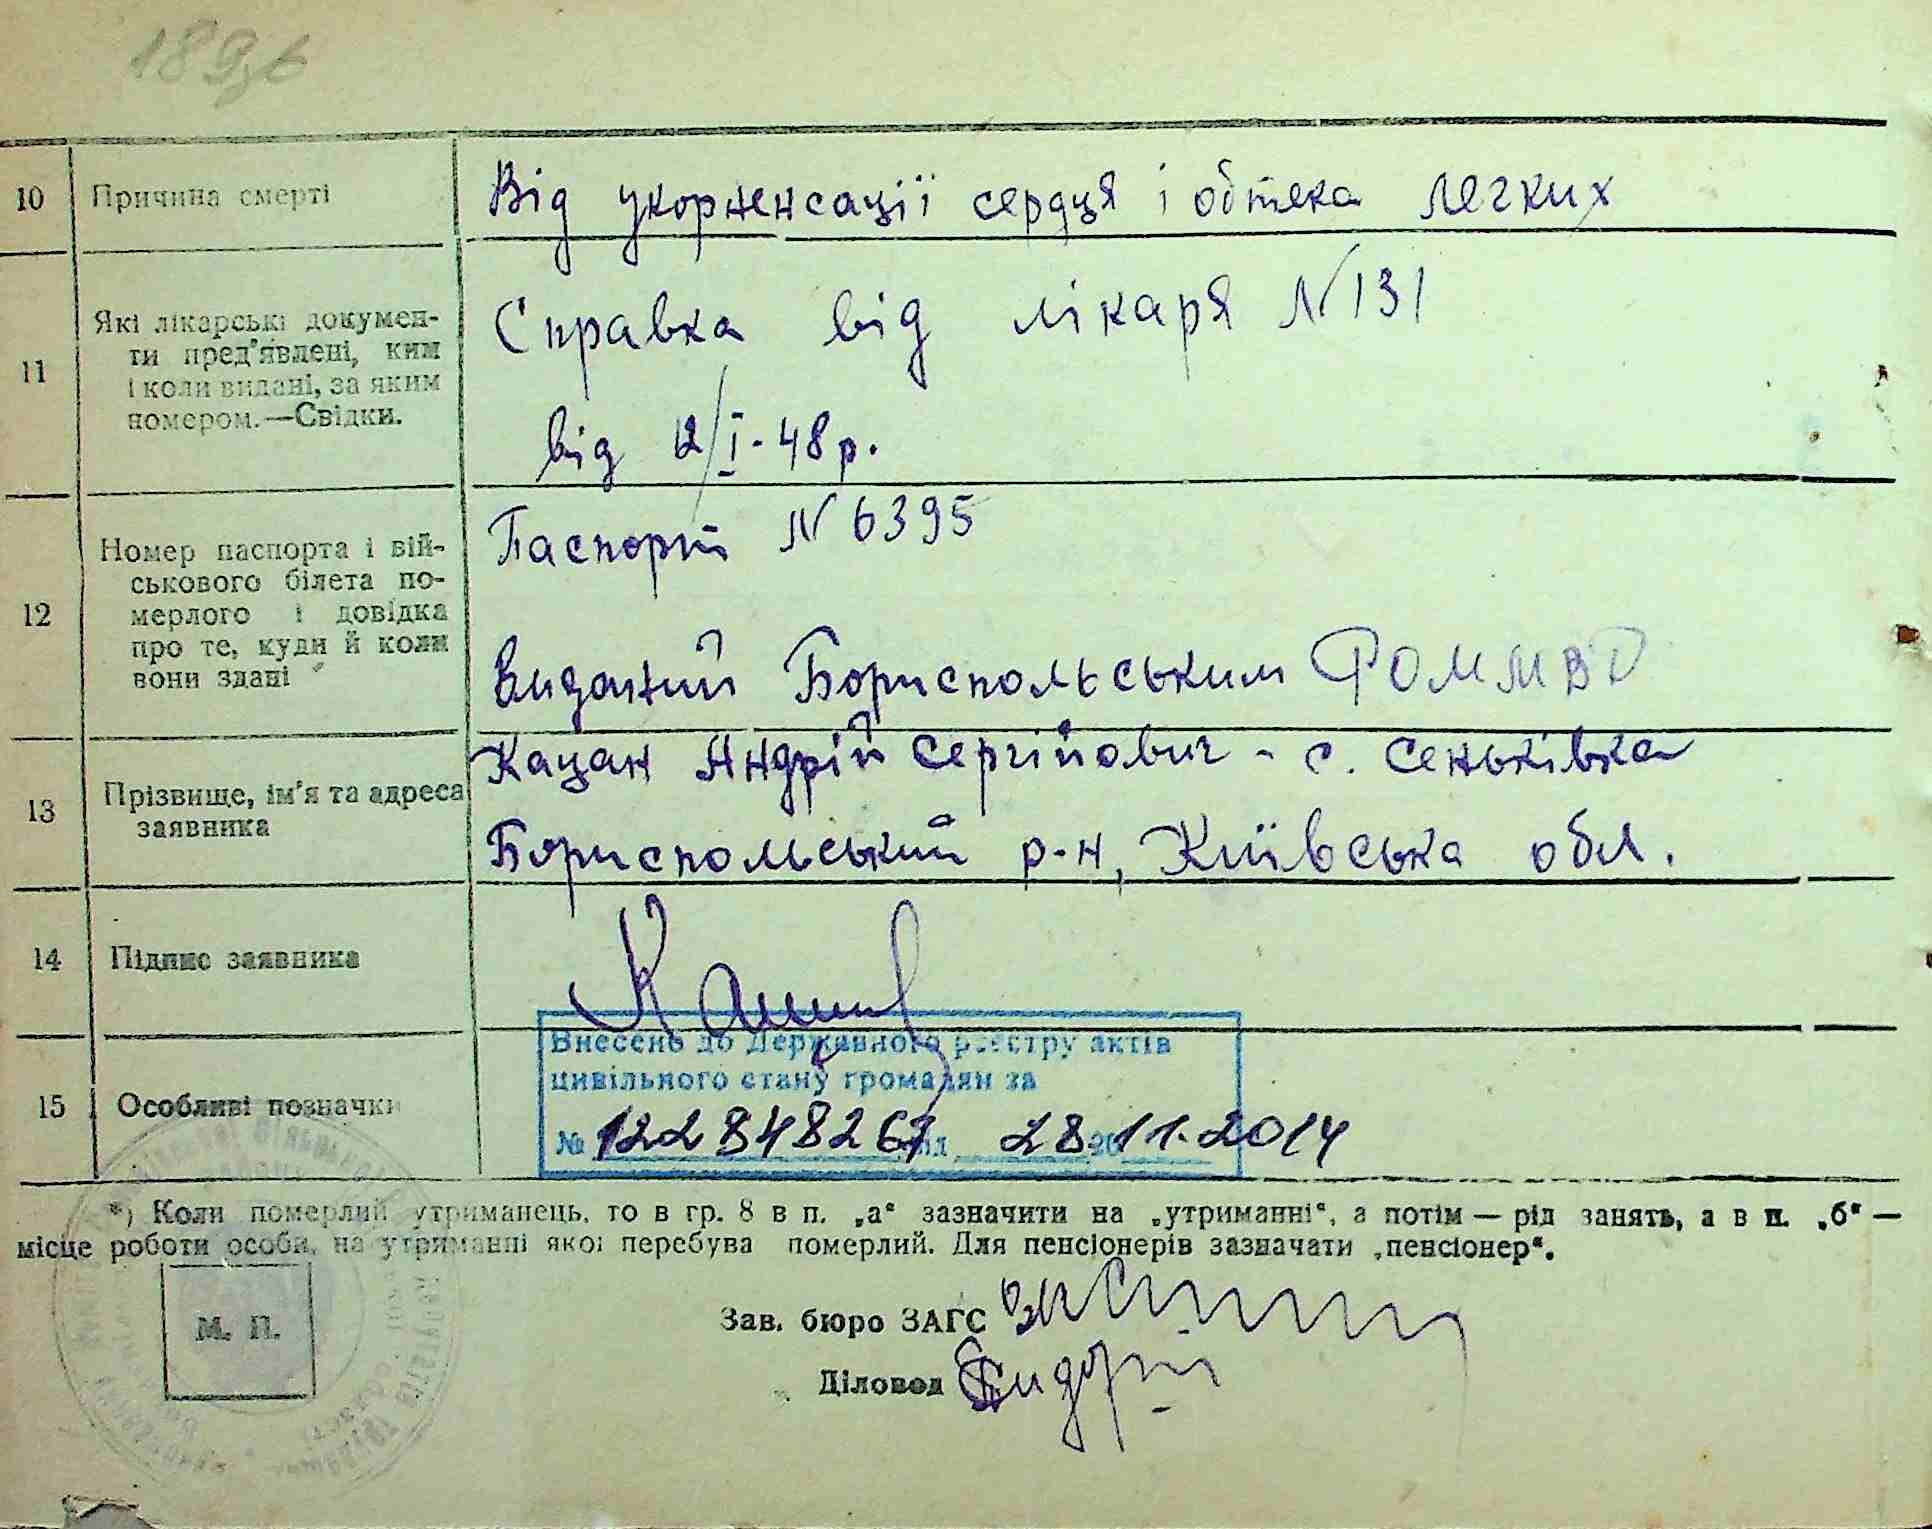 189
10 Причина смерті Від укорненсації сердця і обтека легких
11 Які лікарські докумен-
ти пред'явлені, ким
і коли видані, за яким
номером.—Свідки.
Справка від лікаря N 131
від 12/I-48р.
12 Номер паспорта і вій-
ськового білета по-
мерлого і довідка
про те, куди й коли
вони здані
Паспорт N 6395
Виданий Бориспольським РОММВД
13 Прізвище, ім'я та адреса
заявника
Кацан Андрій Сергійович - с. Сеньківка
Бориспольський р-н, Київська обл.
14 Підпис заявника
15 Особливі позначки
Внесено до Державного реєстру актів
цивільного стану громадян за
№ 122848267 від 28.11.2014
*) Коли померлий утриманець, то в гр. 8 в п. „а“ зазначити на „утриманні“, а потім — рід занять, а в п. „б“ —
місце роботи особи, на утриманні якої перебува померлий. Для пенсіонерів зазначати „пенсіонер“.
М. П.
Зав. бюро ЗАГС
Діловод